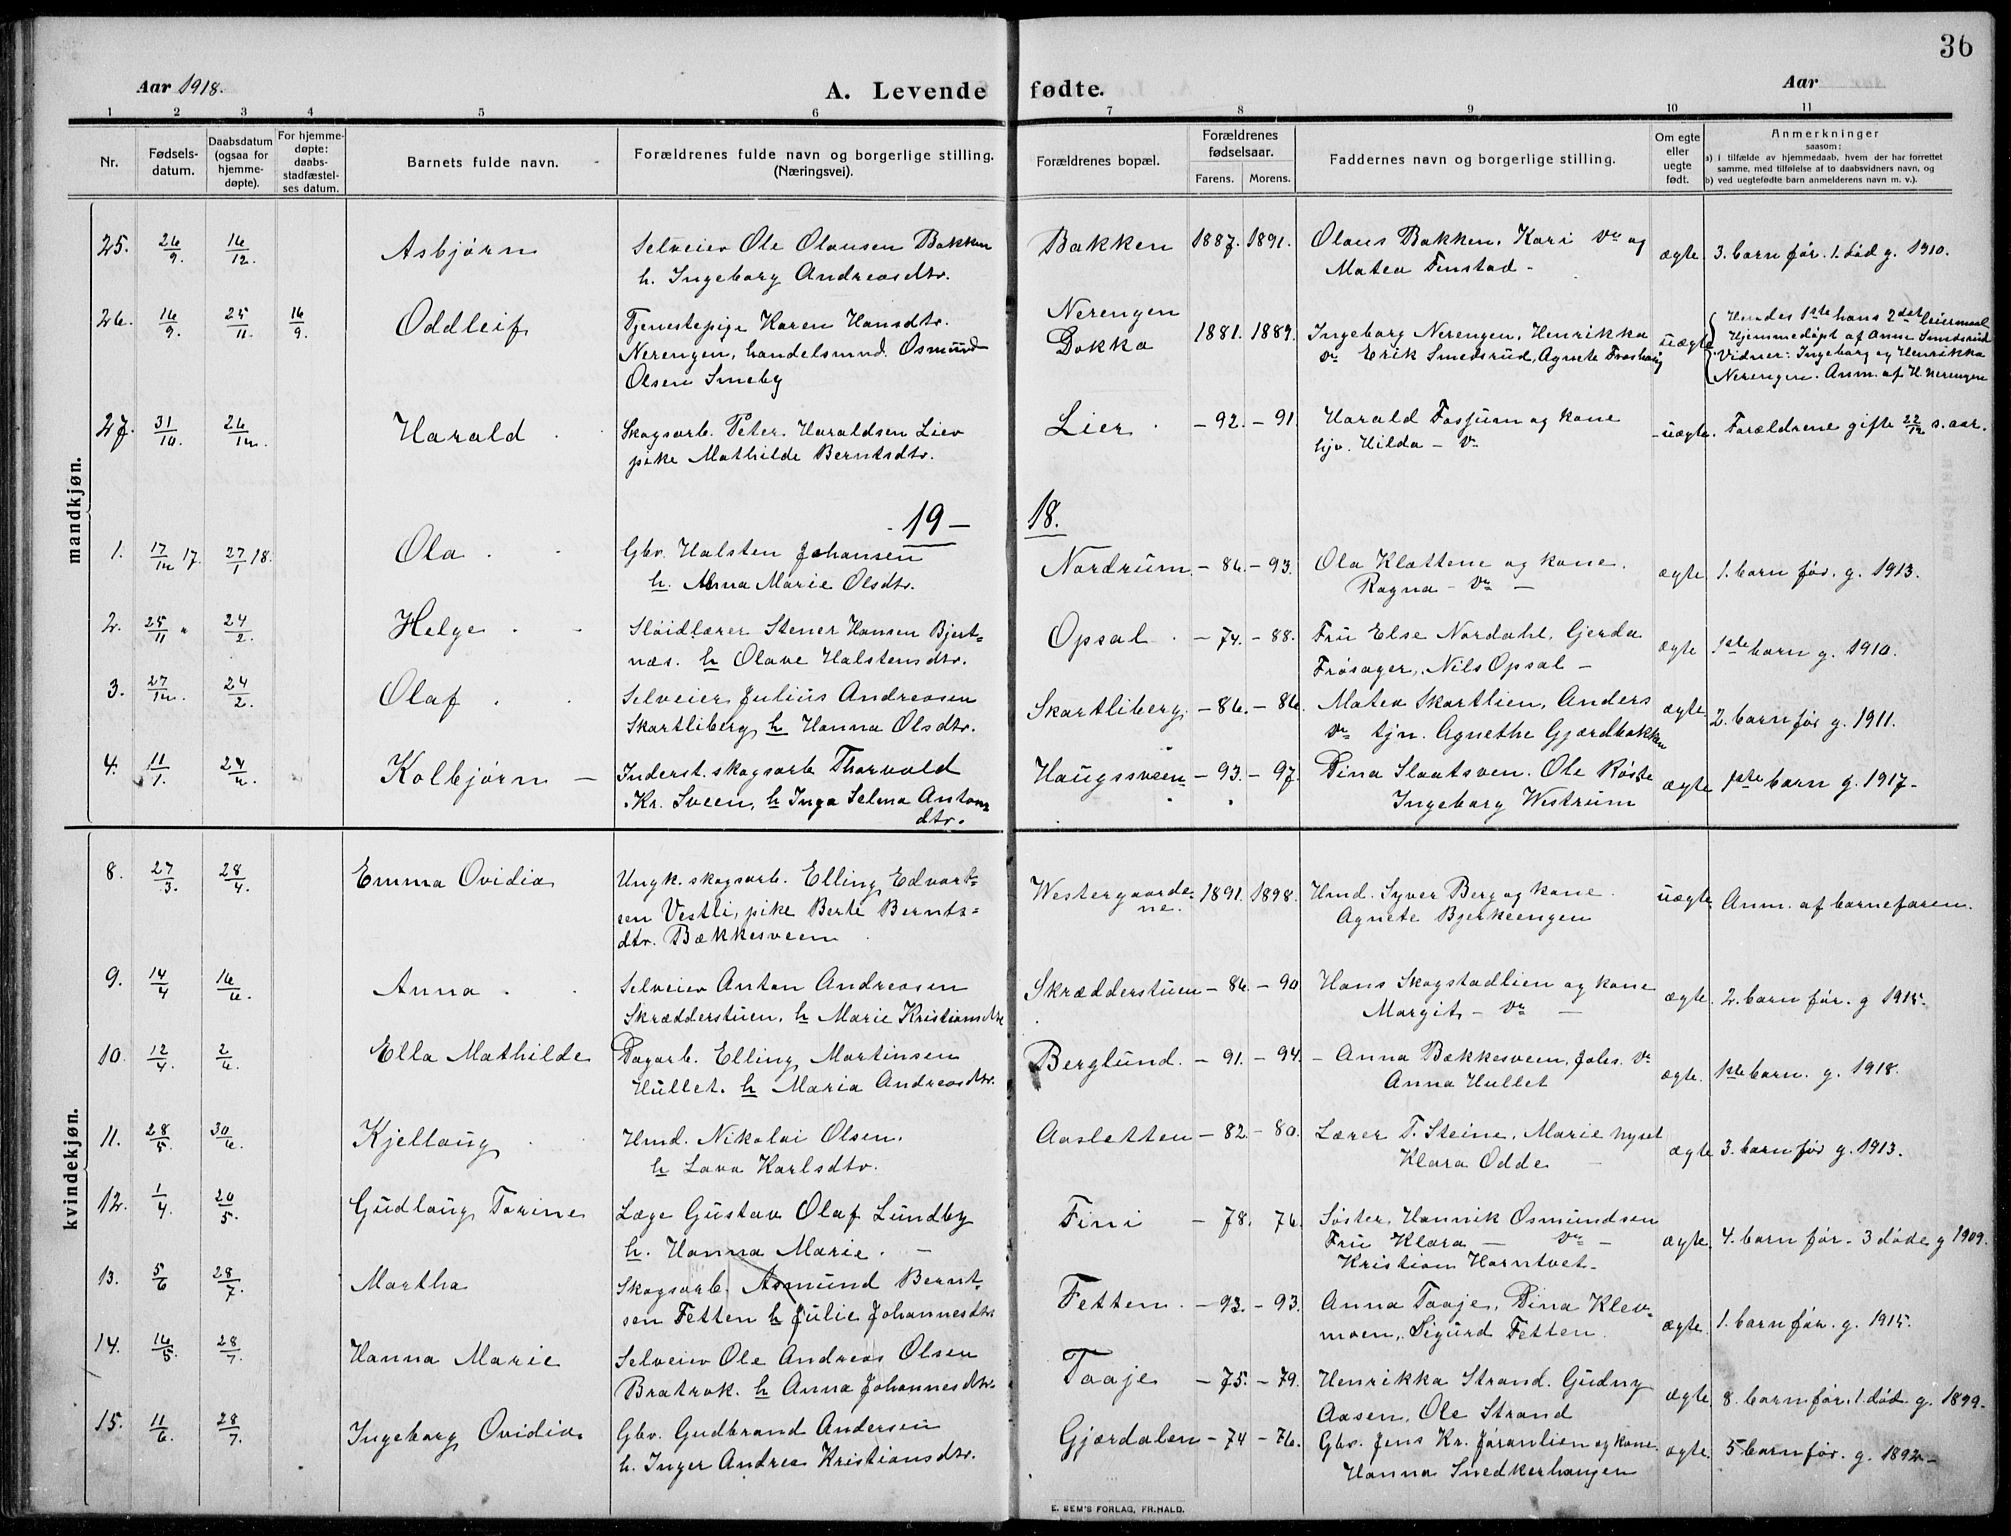 36
Aar 1918.
A. Levende fødte.
Aar
1 2 3 4 5 6 7 8 9 10 11
Nr.
Fødsels-
datum.
Daabsdatum
(ogsaa for
hjemme-
døpte).
For hjemme-
døpte:
daabs-
stadfæstel-
ses datum.
Barnets fulde navn.
Forældrenes fulde navn og borgerlige stilling.
(Næringsvei).
Forældrenes bopæl.
Forældrenes
fødselsaar.
Farens. Morens.
Faddernes navn og borgerlige stilling.
Om egte
eller
uegte
født.
Anmerkninger
saasom:
a) i tilfælde av hjemmedaab, hvem der har forrettet
samme, med tilføielse af to daabsvidners navn, og
b) ved uegtefødte barn anmelderens navn m. v.).
mandkjøn.
25. 26/9. 16/12. Asbjørn
Selveier Ole Olausen Bakken
h. Ingeborg Andreasdtr.
Bakken 1887. 1891.
Olaus Bakken, Kari do og
Matea Finstad -
ægte 3. barn før. 1. død g. 1910.
26. 16/9. 25/11. 16/9. Oddleif
Tjenestepige Karen Hansdtr.
Nerengen, handelsmnd. Osmund
Olsen Smeby
Nerengen
Dokka 1881. 1889.
Ingeborg Nerengen, Henrikka
do Erik Smedsrud, Agnete Froshaug
uægte
Hendes 1ste hans 2det leiermaal
Hjemmedøpt af Anne Smedsrud
Vidner: Ingeborg og Henrikka
Nerengen. Anm. af H. Nerengen
27. 31/10. 26/12. Harald
Skogsarb. Peter Haraldsen Lier
pike Mathilde Berntsdtr.
Lier - 92. - 91
Harald Fossum og kone
hjv. Hilda - do
- uægte. Forældrene gifte 22/12 s. aar.
19 - 18.
1. 17/12 17. 27/1 18. Ola
Gbr. Halsten Johansen
h. Anna Marie Olsdtr.
Nordrum - 86. - 93.
Ola Klattene og kone
Ragna - do -
ægte 1. barn før. g. 1913.
2. 25/11 " 24/2. Helge
Sløidlærer Stener Hansen Bjert-
næs. h Olave Halstensdtr.
Opsal - 74. - 88.
Fru Else Nordahl, Gjerda
Frøsager, Nils Opsal -
ægte 1ste barn g. 1910.
3. 27/12. 24/2. Olaf
Selveier Julius Andreasen
Skartliberg h Hanna Olsdtr.
Skartliberg. - 86. - 86.
Matea Skartlien, Anders
do tjn. Agnethe Gjærdbakken
ægte 2. barn før g. 1911.
4. 11/1. 24/2. Kolbjørn -
Inderst. skogsarb. Thorvald
Kr. Sveen, h Inga Selma Anton
dtr.
Haugssveen - 93. - 97.
Dina Slaatsven. Ole Røste
Ingeborg Westrum
ægte 1ste barn g. 1917 -
kvindekjøn.
8. 27/3. 28/4. Emma Ovidia
Ungk. skogsarb. Elling Edvart-
sen Vestli, pike Berte Bernts-
dtr. Bækkesveen
Westergaarde-
ne. 1891. 1898.
Hmd. Syver Berg og kone
Agnete Bjerkeengen
uægte Anm. af barnefaren.
9. 14/4 16/6. Anna
Selveier Anton Andreasen
Skrædderstuen, h Marie Kristiansdtr
Skrædderstuen - 86. - 90
Hans Skogstadlien og kone
Margit - do -
ægte. 2. barn før. g 1915.
10. 12/4. 2/6. Ella Mathilde
Dagarb. Elling Martinsen
Hullet. h Maria Andreasdtr.
Berglund. - 91. - 94.
- Anna Bækkesveen, Johs. do
Anna Hullet
ægte. 1ste barn. g. 1918.
11. 28/5. 30/6. Kjellaug
Hmd. Nikolai Olsen.
h Lava Karlsdtr.
Aasletten - 82. - 80.
Lærer T. Steine, Marie Nyset
Klara Odde -
ægte 3. barn før g. 1913.
12. 1/4. 20/5. Gudlaug Torine
Læge Gustav Olaf Lundby
h. Hanna Marie. -
Fini - 78. 76.
Søster Hannik Osmundsen
Fru Klara - do -
Kristian Horntvet.
ægte. 4. barn før. 3 døde g 1909.
13. 5/6 28/7. Martha
Skogsarb. Asmund Bernt-
sen Fetten h Julie Johannesdtr
Fetten. - 92. - 93.
Anna Taaje, Dina Klev-
moen, Sigurd Fetten.
ægte. 1. barn før. g. 1915.
14. 16/5. 28/7. Hanna Marie
Selveier Ole Andreas Olsen
Bratrok. h Anna Johannesdtr.
Taaje - 75. - 79.
Henrikka Strand. Gudny
Aasen, Ole Strand
ægte. 8. barn før. 1. død. g. 1899.
15. 11/6 28/7. Ingeborg Ovidia
Gbr. Gudbrand Andersen
h. Inger Andrea Kristiansdtr.
Gjærdalen - 74 - 76.
Gbr. Jens Kr. Jøranlien og kone
Hanna Snedkerhaugen
ægte. 5 barn før. g. 1892 -
E. SEM'S FORLAG, FR.HALD.